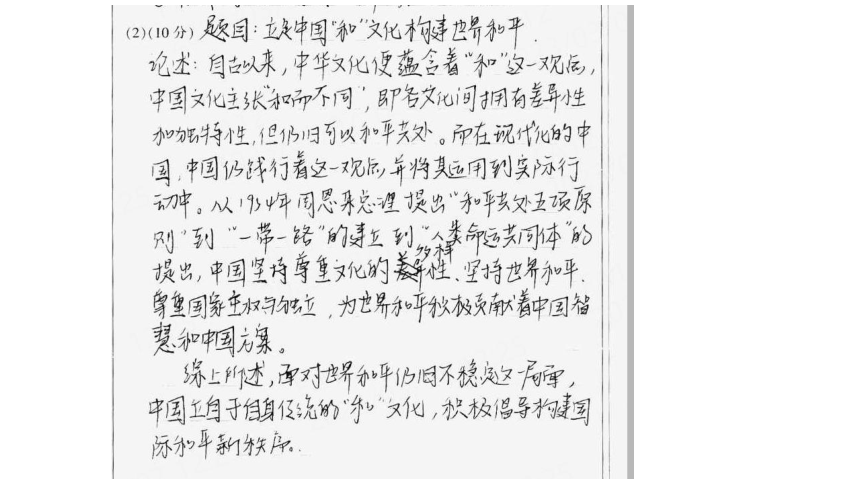 (2)(10分) 题目：立足中国“和”文化构建世界和平.
论述：自古以来，中华文化便蕴含着“和”这一观念，
中国文化主张“和而不同”，即各文化间拥有差异性
和独特性，但仍旧可以和平共处。而在现代化的中
国，中国仍践行着这一观念，并将其运用到实际行
动中。从1954年周恩来总理提出“和平共处五项原
则”到“一带一路”的建立到“人类命运共同体”的
提出，中国坚持尊重文化的多样性、坚持世界和平.
尊重国家主权与独立，为世界和平积极贡献着中国智
慧和中国方案。
综上所述，面对世界和平仍旧不稳定这一局面，
中国立自于自身传统的“和”文化，积极倡导构建国
际和平新秩序。